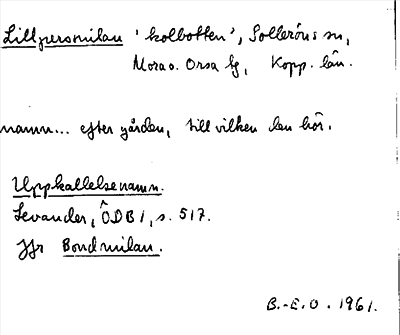 Lillpersmilan 'kolbotten', Solleröns sn,
Mora o. Orsa tg, Kopp. län.
namn... efter gården, till vilken den hör.
Uppkallelsenamn.
Levander, ÖDB I, s. 517.
Jfr Bondmilan.
B.-E. O. 1961.